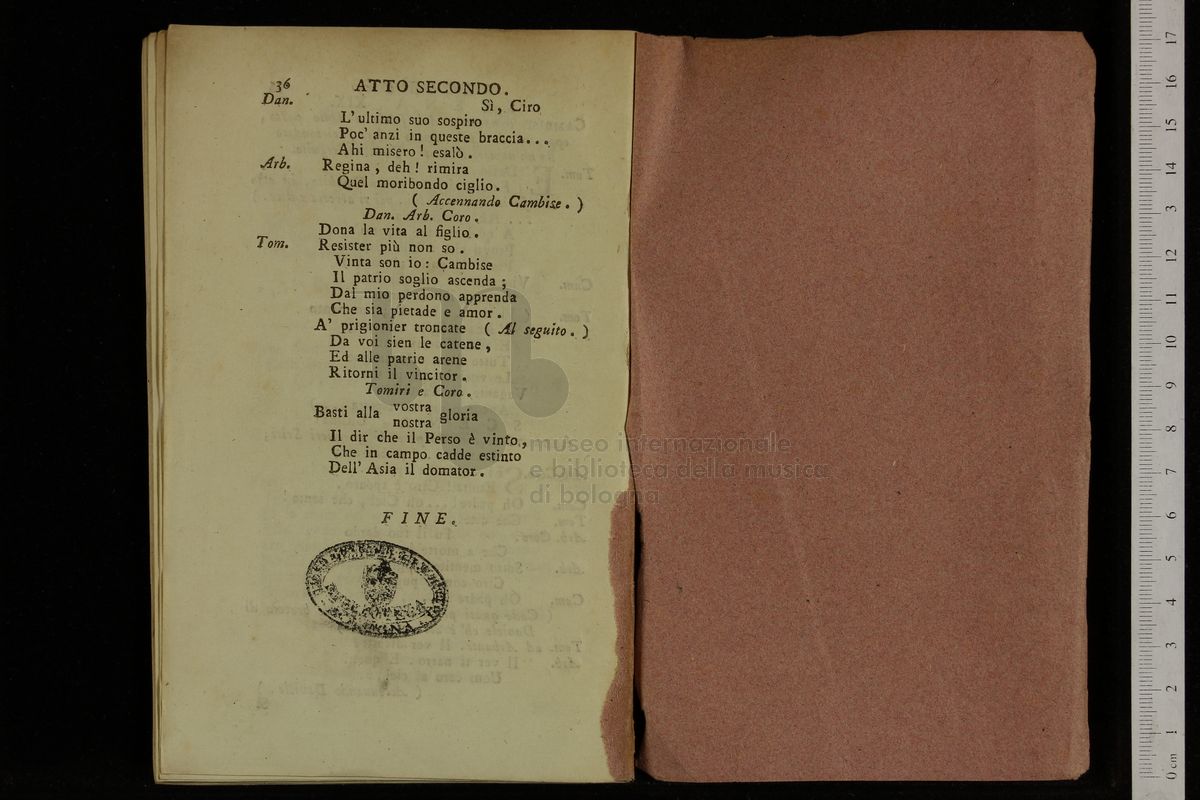 36 ATTO SECONDO.
Dan. Sì, Ciro
L'ultimo suo sospiro
Poc' anzi in queste braccia...
Ahi misero! esalò.
Arb. Regina, deh! rimira
Quel moribondo ciglio.
( Accennando Cambise. )
Dan. Arb. Coro.
Dona la vita al figlio.
Tom. Resister più non so.
Vinta son io: Cambise
Il patrio soglio ascenda;
Dal mio perdono apprenda
Che sia pietade e amor.
A' prigionier troncate ( Al seguito. )
Da voi sien le catene,
Ed alle patrie arene
Ritorni il vincitor.
Tomiri e Coro.
Basti alla vostra
nostra gloria
Il dir che il Perso è vinto,
Che in campo cadde estinto
Dell' Asia il domator.
FINE.
museo internazionale
e biblioteca della musica
di bologna
17
16
15
14
13
12
11
10
9
8
7
6
5
4
3
2
1
0 cm